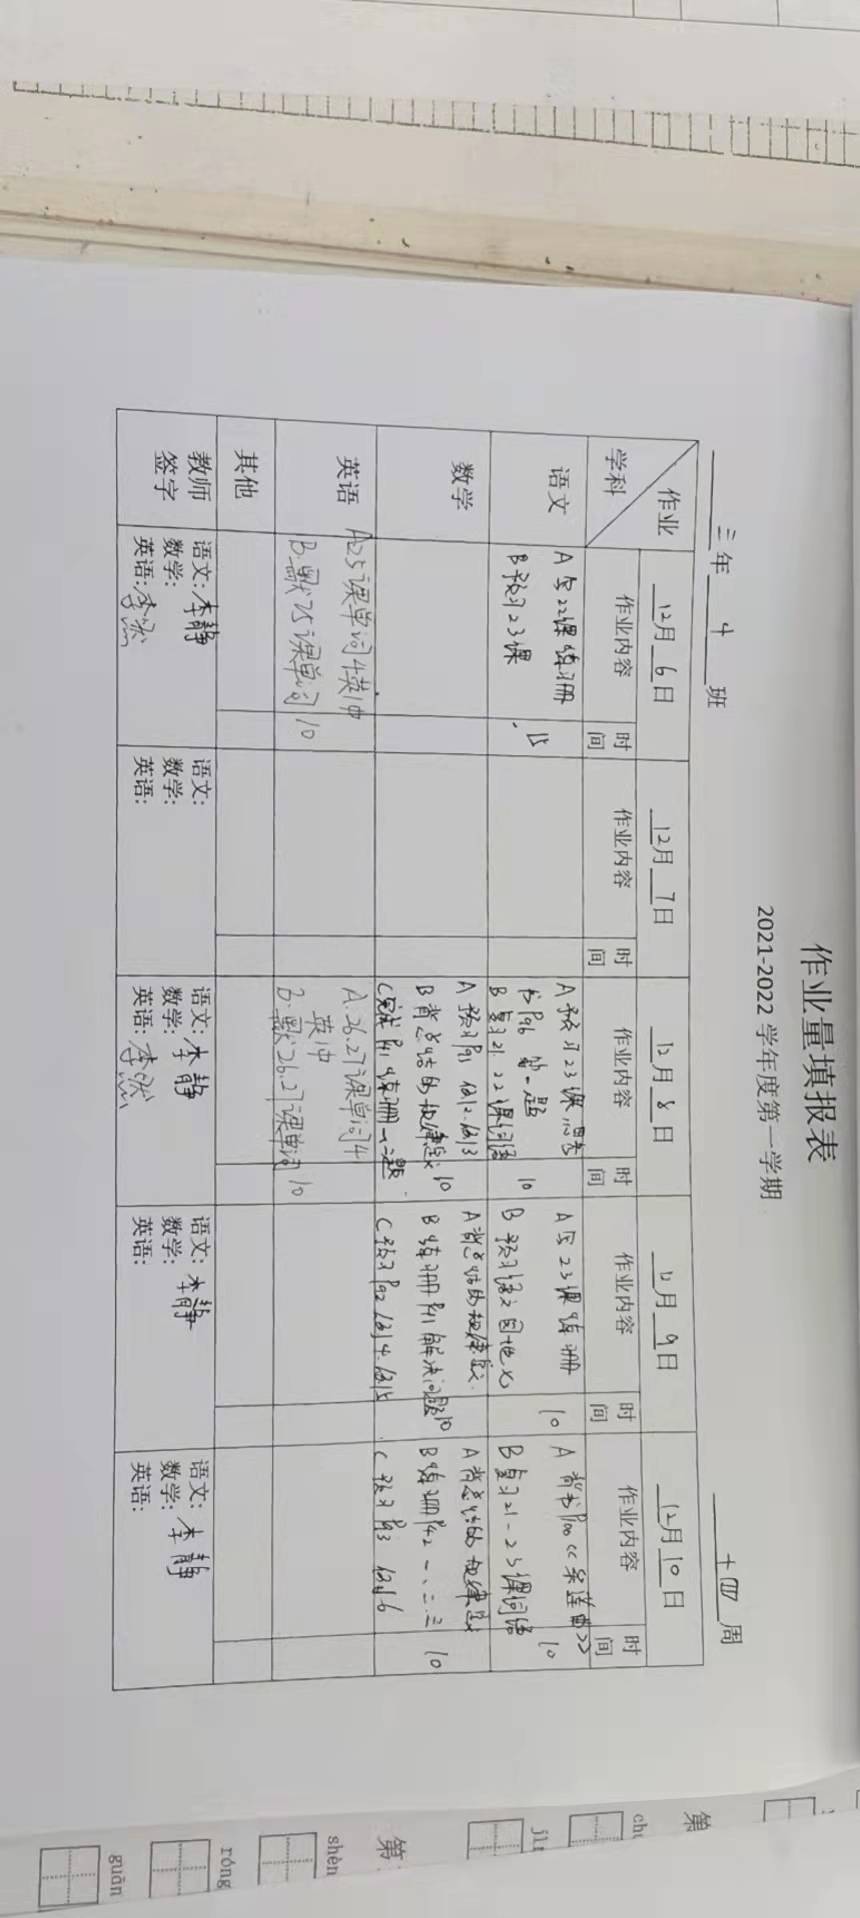 作业量填报表
2021-2022学年度第一学期
三年 4 班
十四周
作业
学科
12月6日
12月7日
12月8日
12月9日
12月10日
作业内容
时间
作业内容
时间
作业内容
时间
作业内容
时间
作业内容
时间
语文
A 写22课练习册
B 预习23课
15
A 预习23课 思考
书P96 第一题
B 复习21、22课词语
10
A 写23课练习册
B 预习语文园地七
10
A 背书P100《采莲曲》
B 复习21-23课词语
10
数学
A 预习P91 例2.例3
B 背总结的规律、意义
C 完成P41练习册一、二题
10
A 背总结的规律、意义
B 练习册P41解决问题
C 预习P92 例4.例5
10
A 背总结的规律、意义
B 练习册P42 一、二、三
C 预习P93 例6
10
英语
A25课单词4英1中
B.默25课单词
10
A.26.27课单词4
英1中
B.默26.27课单词
10
其他
教师
签字
语文:李静
数学:
英语:李然
语文:
数学:
英语:
语文:李静
数学:
英语:李然
语文:李静
数学:
英语:
语文:李静
数学:
英语:
第
第
shèn
róng
guān